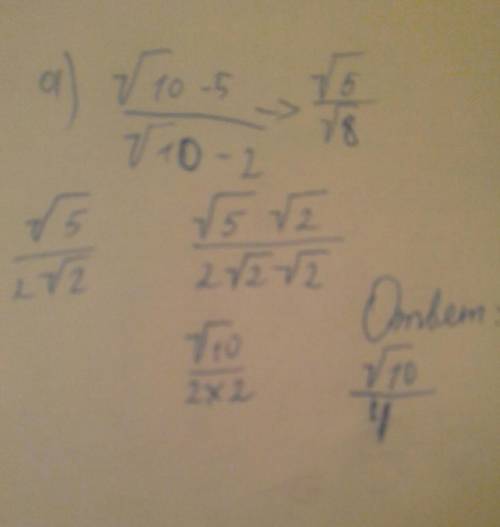 a) (√10 - 5)/(√10 - 2) → √5/√8
√5/(2√2)   (√5 √2)/(2√2 √2)
√10/(2×2)   Ответ:
√10/4